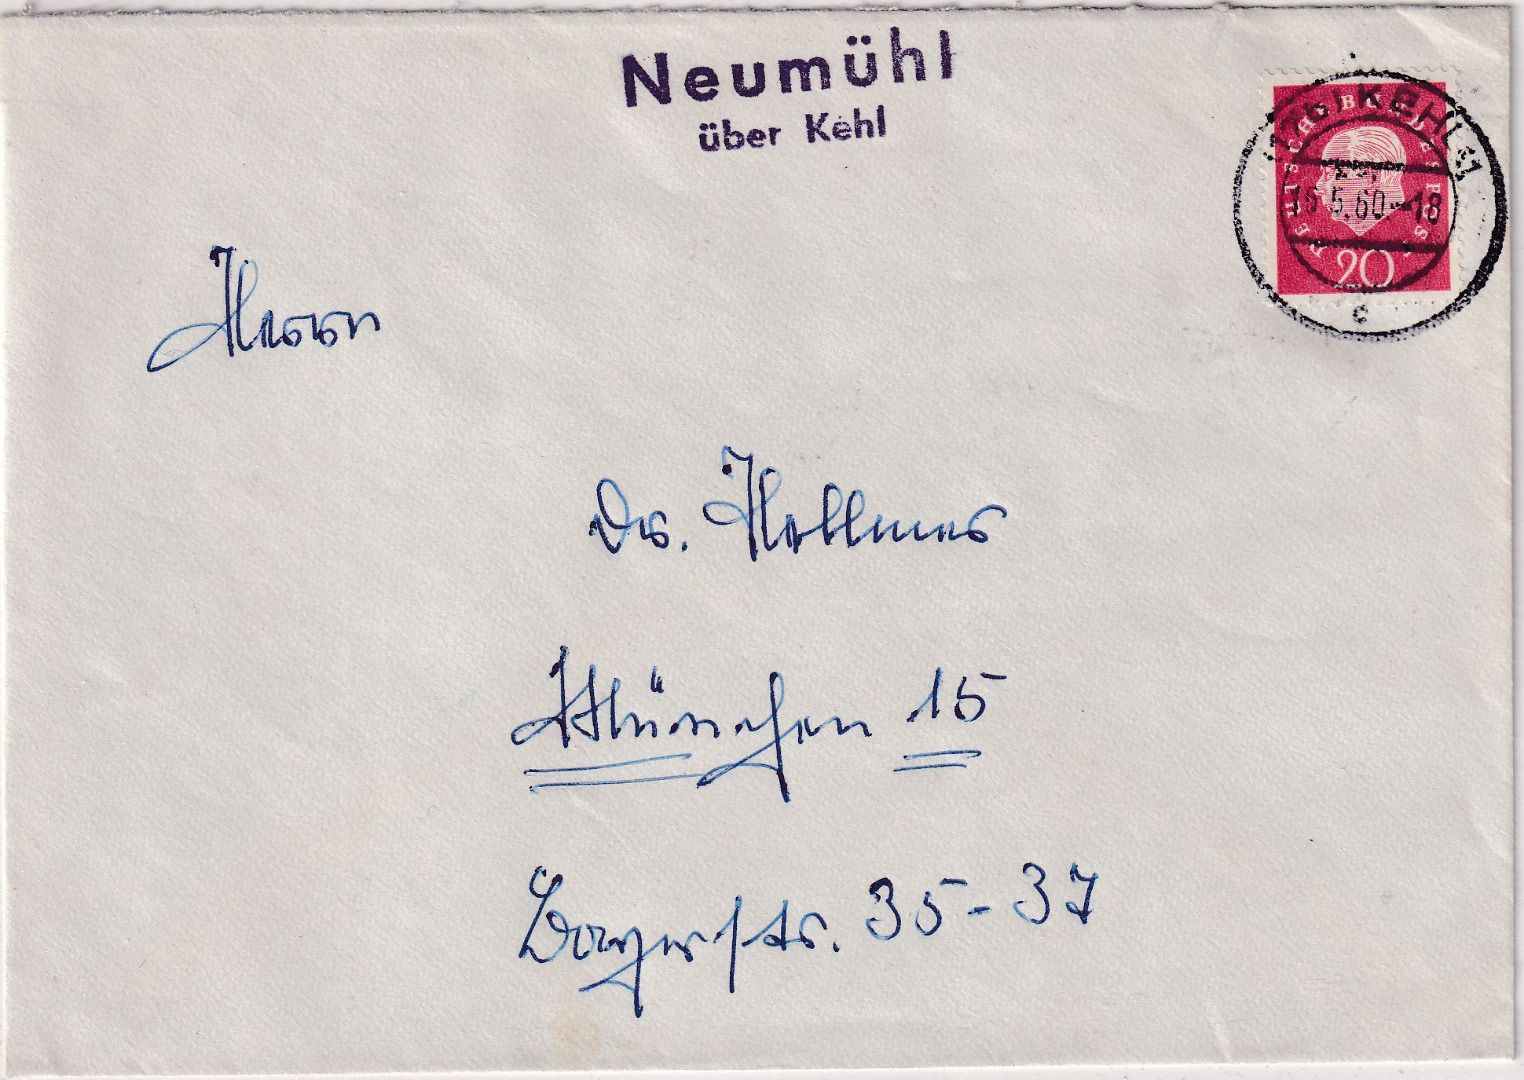 Neumühl
über Kehl
(17b) KEHL 1
DEUTSCHE BUNDESPOST
5.60.-18
20
c
Herrn
Dr. Hollmer
München 15
Bayerstr. 35-37